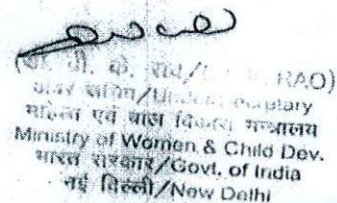 (के. पी. के. राव/ RAO)
अवर सचिव/Under Secretary
महिला एवं बाल विकास मन्त्रालय
Ministry of Women & Child Dev.
भारत सरकार/Govt. of India
नई दिल्ली/New Delhi